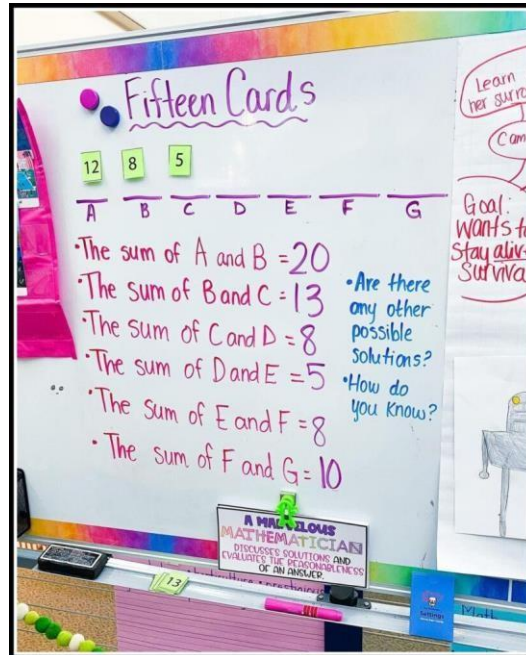 Fifteen Cards
12 8 5
A B C D E F G
•The sum of A and B = 20
•The sum of B and C = 13
•The sum of C and D = 8
•The sum of D and E = 5
•The sum of E and F = 8
•The sum of F and G = 10
•Are there
any other
possible
solutions?
•How do
you know?
Learn
her
Goal:
Wants
Stay
A MARVELOUS
MATHEMATICIAN
DISCUSSES SOLUTIONS AND
EVALUATES THE REASONABLENESS
OF AN ANSWER.
13
Math